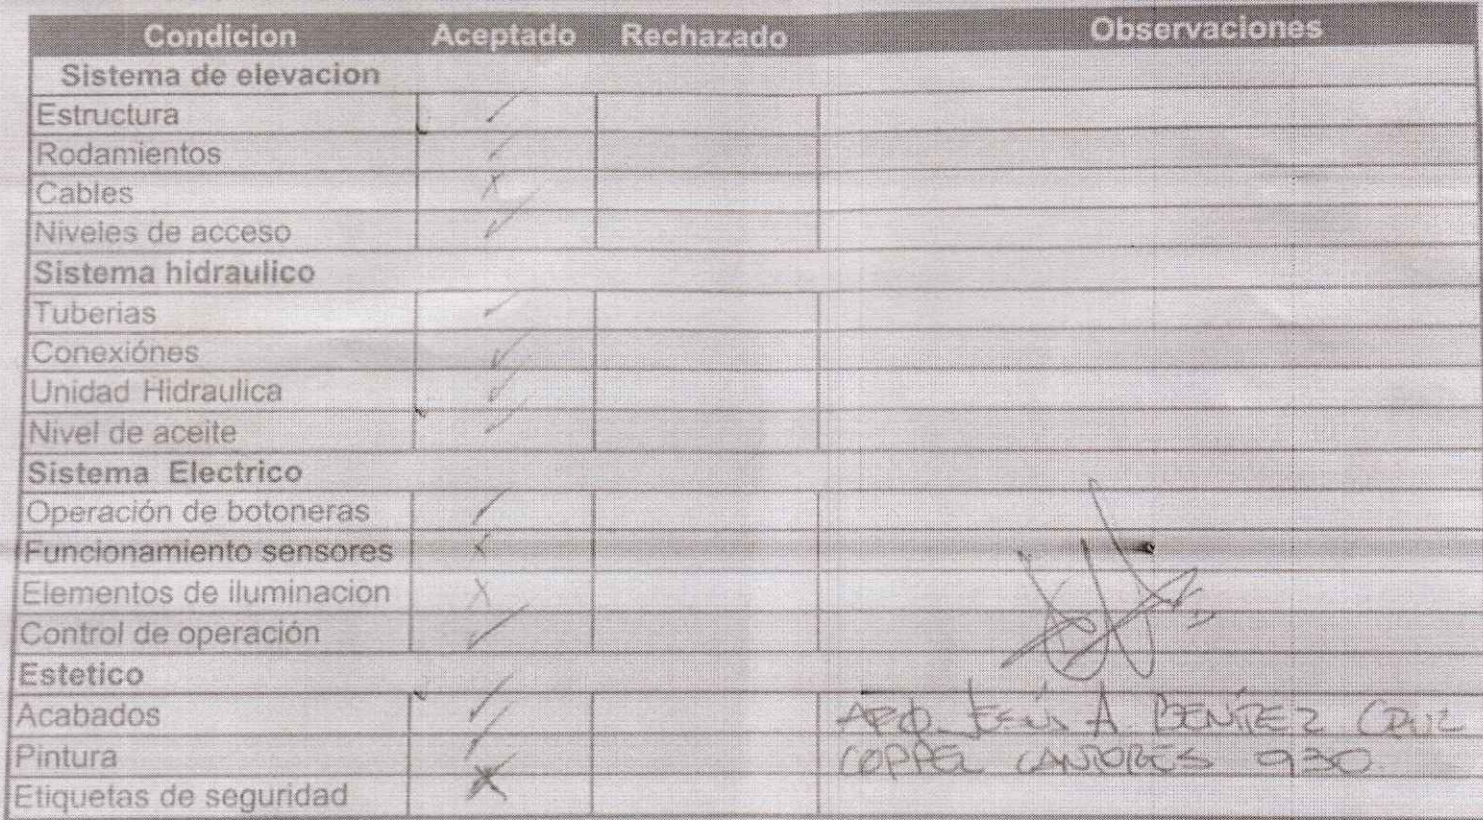 Condicion Aceptado Rechazado Observaciones
Sistema de elevacion
Estructura ✓
Rodamientos ✓
Cables X
Niveles de acceso ✓
Sistema hidraulico
Tuberias ✓
Conexiónes ✓
Unidad Hidraulica ✓
Nivel de aceite ✓
Sistema Electrico
Operación de botoneras ✓
Funcionamiento sensores X
Elementos de iluminacion X
Control de operación ✓
Estetico
Acabados ✓ ARQ. JESÚS A. BENÍTEZ CRUZ
Pintura ✓ COPPEL 930
Etiquetas de seguridad X